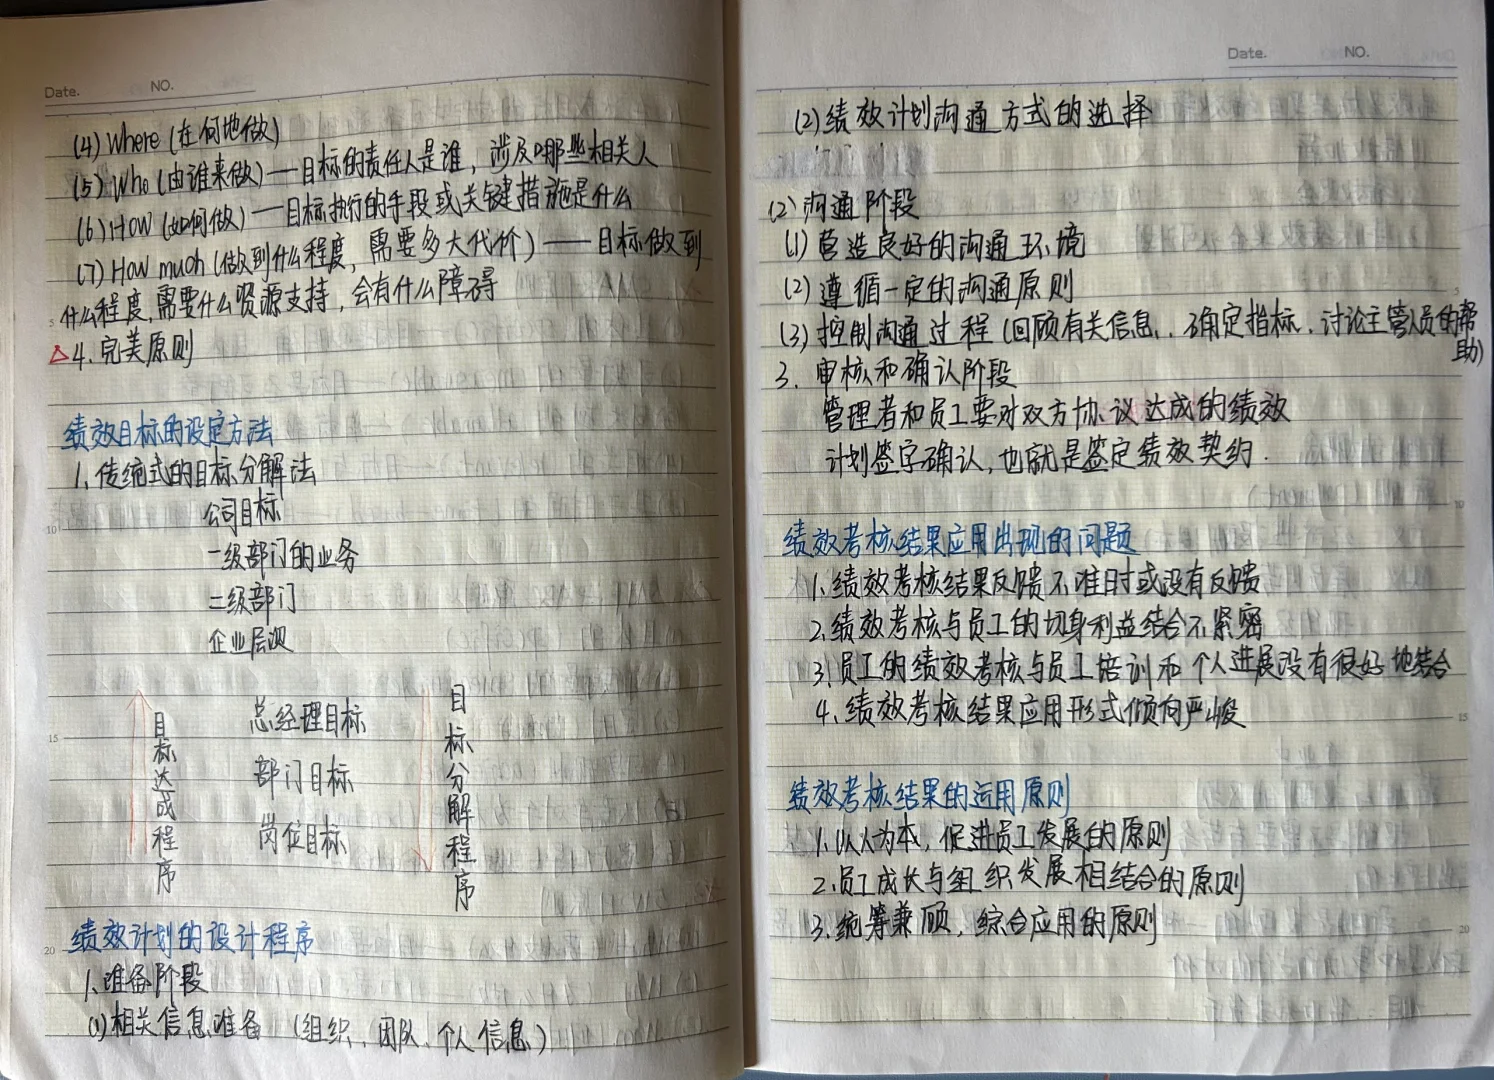 Date. NO.
(4) Where (在何地做)
(5) Who (由谁来做)——目标的责任人是谁，涉及哪些相关人
(6) How (如何做)——目标执行的手段或关键措施是什么
(7) How much (做到什么程度，需要多大代价)——目标做到
什么程度，需要什么资源支持，会有什么障碍
5
△4. 完美原则
绩效目标的设定方法
1、传统式的目标分解法
公司目标
10
一级部门的业务
二级部门
企业层次
目标达成程序
15
总经理目标
部门目标
岗位目标
目标分解程序
绩效计划的设计程序
20
1、准备阶段
(1)相关信息准备 (组织、团队、个人信息)
Date. NO.
(2)绩效计划沟通方式的选择
(2)沟通阶段
(1)营造良好的沟通环境
(2)遵循一定的沟通原则
5
(3)控制沟通过程(回顾有关信息、确定指标、讨论主管人员的帮
助)
3. 审核和确认阶段
管理者和员工要对双方协议达成的绩效
计划签字确认，也就是签定绩效契约.
10
绩效考核结果应用出现的问题
1.绩效考核结果反馈不准时或没有反馈
2.绩效考核与员工的切身利益结合不紧密
3.员工的绩效考核与员工培训和个人进展没有很好地结合
4.绩效考核结果应用形式倾向严峻
15
绩效考核结果的运用原则
1.以人为本，促进员工发展的原则
2.员工成长与组织发展相结合的原则
3.统筹兼顾，综合应用的原则
20